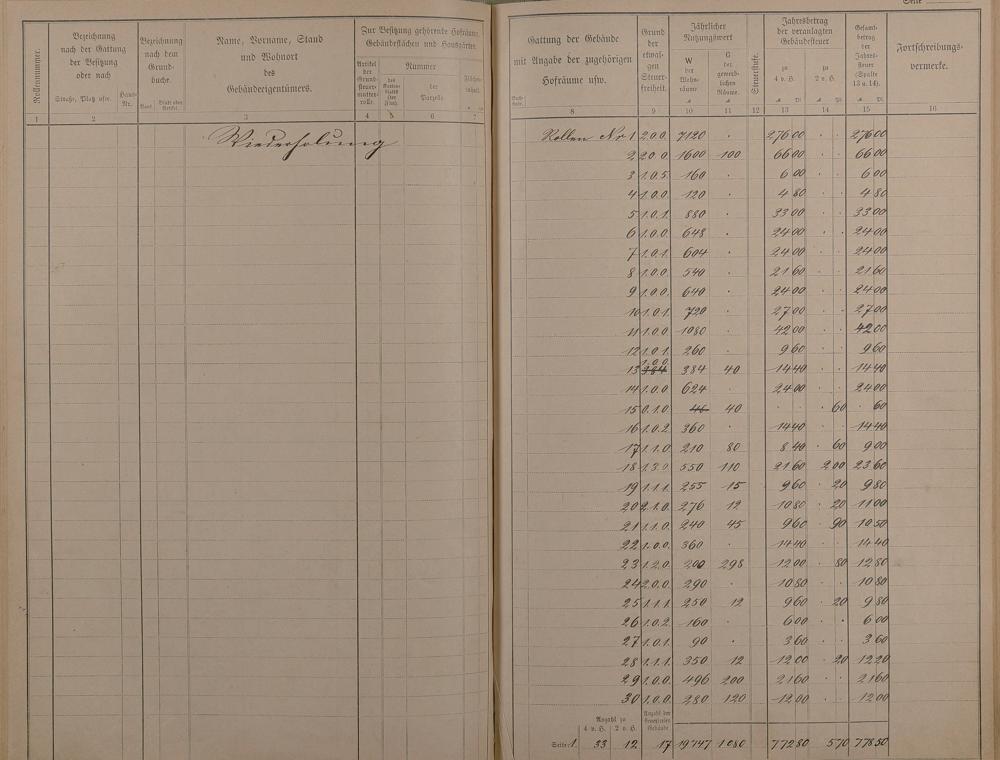 Seite
Rollennummer.
Bezeichnung
nach der Gattung
der Besitzung
oder nach
Straße, Platz usw.
Haus-
Nr.
Bezeichnung
nach dem
Grund-
buche.
Band
Blatt oder
Artikel
Name, Vorname, Stand
und Wohnort
des
Gebäudeeigentümers.
Zur Besitzung gehörende Hofräume,
Gebäudeflächen und Hausgärten
Artikel
der
Grund-
steuer-
mutter-
rolle.
Nummer
des
der
Parzelle
1 2 3 4 5 6 7
Wiederholung
Gattung der Gebäude
mit Angabe der zugehörigen
Hofräume usw.
Grund
der
etwai-
gen
Steuer-
freiheit.
Jährlicher
Nutzungswert
W
der
Wohn-
räume
G
der
gewerb-
lichen
Räume.
Steuerstufe.
Jahresbetrag
der veranlagten
Gebäudesteuer
zu
4 v. H.
zu
2 v. H.
Gesamt-
betrag
der
Jahres-
steuer
(Spalte
13 u. 14).
Fortschreibungs-
vermerke.
8 9 10 11 12 13 14 15 16
Rollen Nr 1 2.0.0. 7120 . 276 00 . . 276 00
2 2.0.0. 1600 100 66 00 . . 66 00
3 1.0.5. 160 . 6 00 . . 6 00
4 1.0.0. 120 . 4 80 . . 4 80
5 1.0.1. 880 . 33 00 . . 33 00
6 1.0.0. 648 . 24 00 . . 24 00
7 1.0.1. 604 . 24 00 . . 24 00
8 1.0.0. 540 . 21 60 . . 21 60
9 1.0.0. 640 . 24 00 . . 24 00
10 1.0.1. 720 . 27 00 . . 27 00
11 1.0.0. 1080 . 42 00 . . 42 00
12 1.0.1. 260 . 9 60 . . 9 60
1.0.0.
13 384 384 40 14 40 . . 14 40
14 1.0.0. 624 . 24 00 . . 24 00
15 0.1.0. 40 . . . 60 . 60
16 1.0.2. 360 . 14 40 . . 14 40
17 1.1.0. 210 80 8 40 . 60 9 00
18 1.3.0. 550 110 21 60 2 00 23 60
19 1.1.1. 255 15 9 60 . 20 9 80
20 2.1.0. 276 12 10 80 . 20 11 00
21 1.1.0. 240 45 9 60 . 90 10 50
22 1.0.0. 360 . 14 40 . . 14 40
23 1.2.0. 200 298 12 00 . 80 12 80
24 2.0.0. 290 . 10 80 . . 10 80
25 1.1.1. 250 12 9 60 . 20 9 80
26 1.0.2. 160 . 6 00 . . 6 00
27 1.0.1. 90 . 3 60 . . 3 60
28 1.1.1. 350 12 12 00 . 20 12 20
29 1.0.0. 496 200 21 60 . . 21 60
30 1.0.0. 280 120 12 00 . . 12 00
Anzahl zu
4 v. H. 2 v. H.
Anzahl der
steuerfreien
Gebäude
Seite 1. 33 12 17 19747 1080 772 80 5 70 778 50